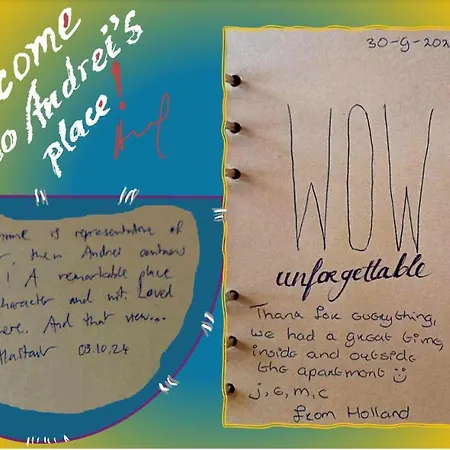 come
o Andrei's
place!
ome is representative of
, then Andrei contains
! A remarkable place
haracter and wit. Loved
ere. And that view...
Alastair 03.10.24
30-9-202
WOW
unforgettable
Thank for everything,
we had a great time,
inside and outside
the apartment
j, e, m, c
from Holland